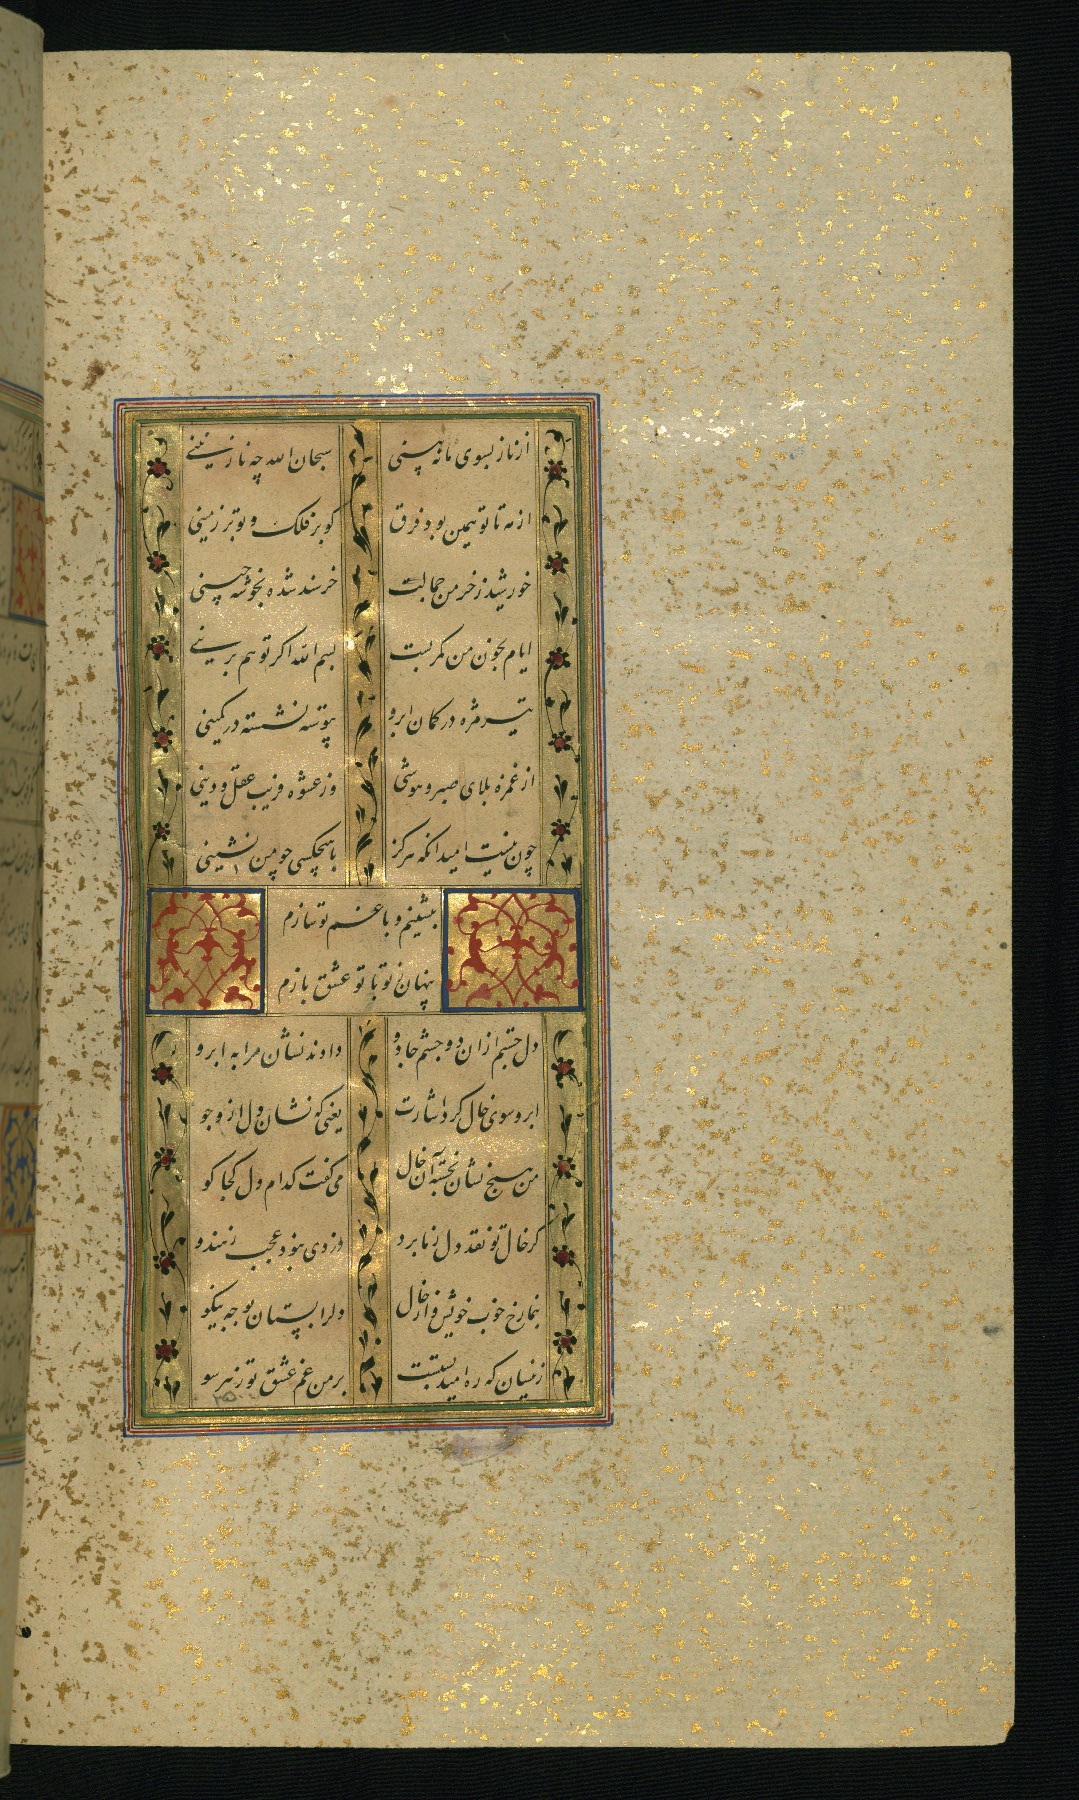 از ناز بسوی ما نه بینی سبحان الله چه نازنینی
از مه تا تو همین بود فرق کو بر فلک و تو بر زمینی
خورشید ز خرمن جمالت خرسند شده بخوشه چینی
ایام بخون من کمر بست بسم الله اکر تو هم برینی
تیر مژه در کمان ابرو پیوسته نشسته در کمینی
از غمزه بلای صبر و هوشی وز عشوه فریب عقل و دینی
چون نیست امید آنکه هرکز با همچکسی چو من نشینی
بنشینم و با غم تو سازم
پنهان ز تو با تو عشق بازم
دل جستم از ان دو چشم جادو دادند نشان مرا به ابرو
ابرو سوی خال کرد اشارت یعنی که نشان دل ازو جو
من هیچ نشان نجسته آن خال می کفت کدام دل کجا کو
کر خال تو نقد دل ز ما برد دزدی نبود عجب ز هندو
بنما رخ خوب خویش و از خال دل را بستان بوجه نیکو
زینسان که ره امید بستست بر من غم عشق تو ز هر سو